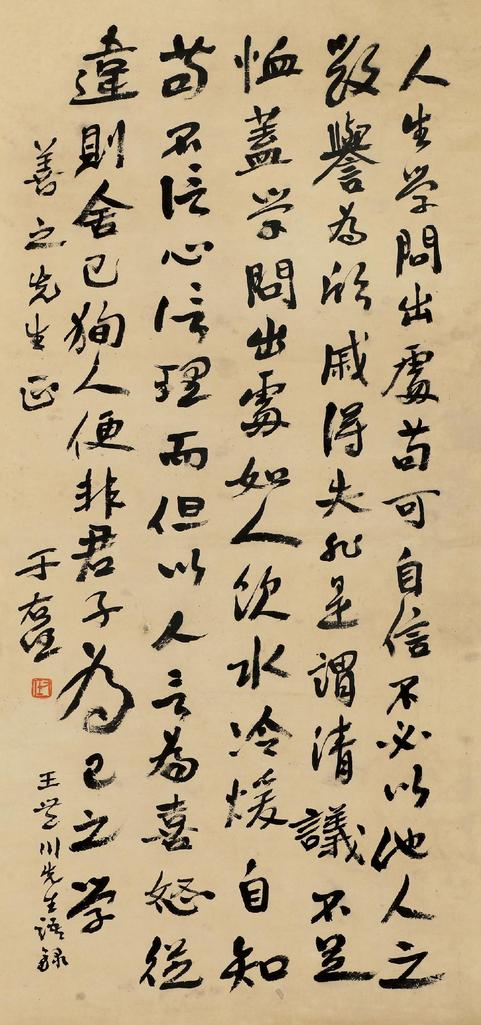 人生学問出處苟可自信不必以他人之
毀譽為欣戚得失非是謂清議不足
恤蓋学問出處如人飲水冷煖自知
苟不信心信理而但以人言為喜怒從
違則舍己狥人便非君子為己之学
王豊川先生語録
善之先生正
于右任